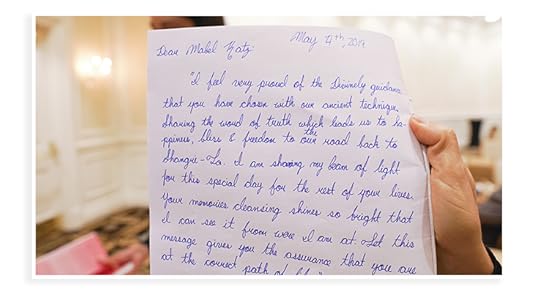 May 4th, 2019
Dear Mabel Katz:
"I feel very proud of the Divinely guidance
that you have chosen with our ancient technique,
Sharing the word of truth which leads us to ha-
ppiness, bless & freedom to our the road back to
Shangri-La. I am sharing my beam of light
for this special day for the rest of your lives.
Your memories cleansing shines so bright that
I can see it from were I am at. Let this
message gives you the assurance that you are
at the correct path of